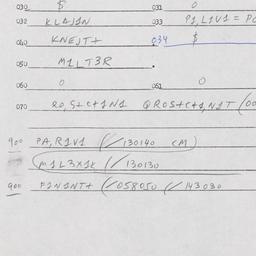 030 $ 031 0
032 KLAJ1N 033 P1,L1V1 = PO
040 KNEJT+ 034 $
050 M1LT3R.
060 0 061 0
070 RO,S+C+1N1 QROS+C+1,N1T (00
900 PA,R1V1 (//130140 CM)
M1L3X1K (//130130
900 F1N1NT+ (/058050 (/143030